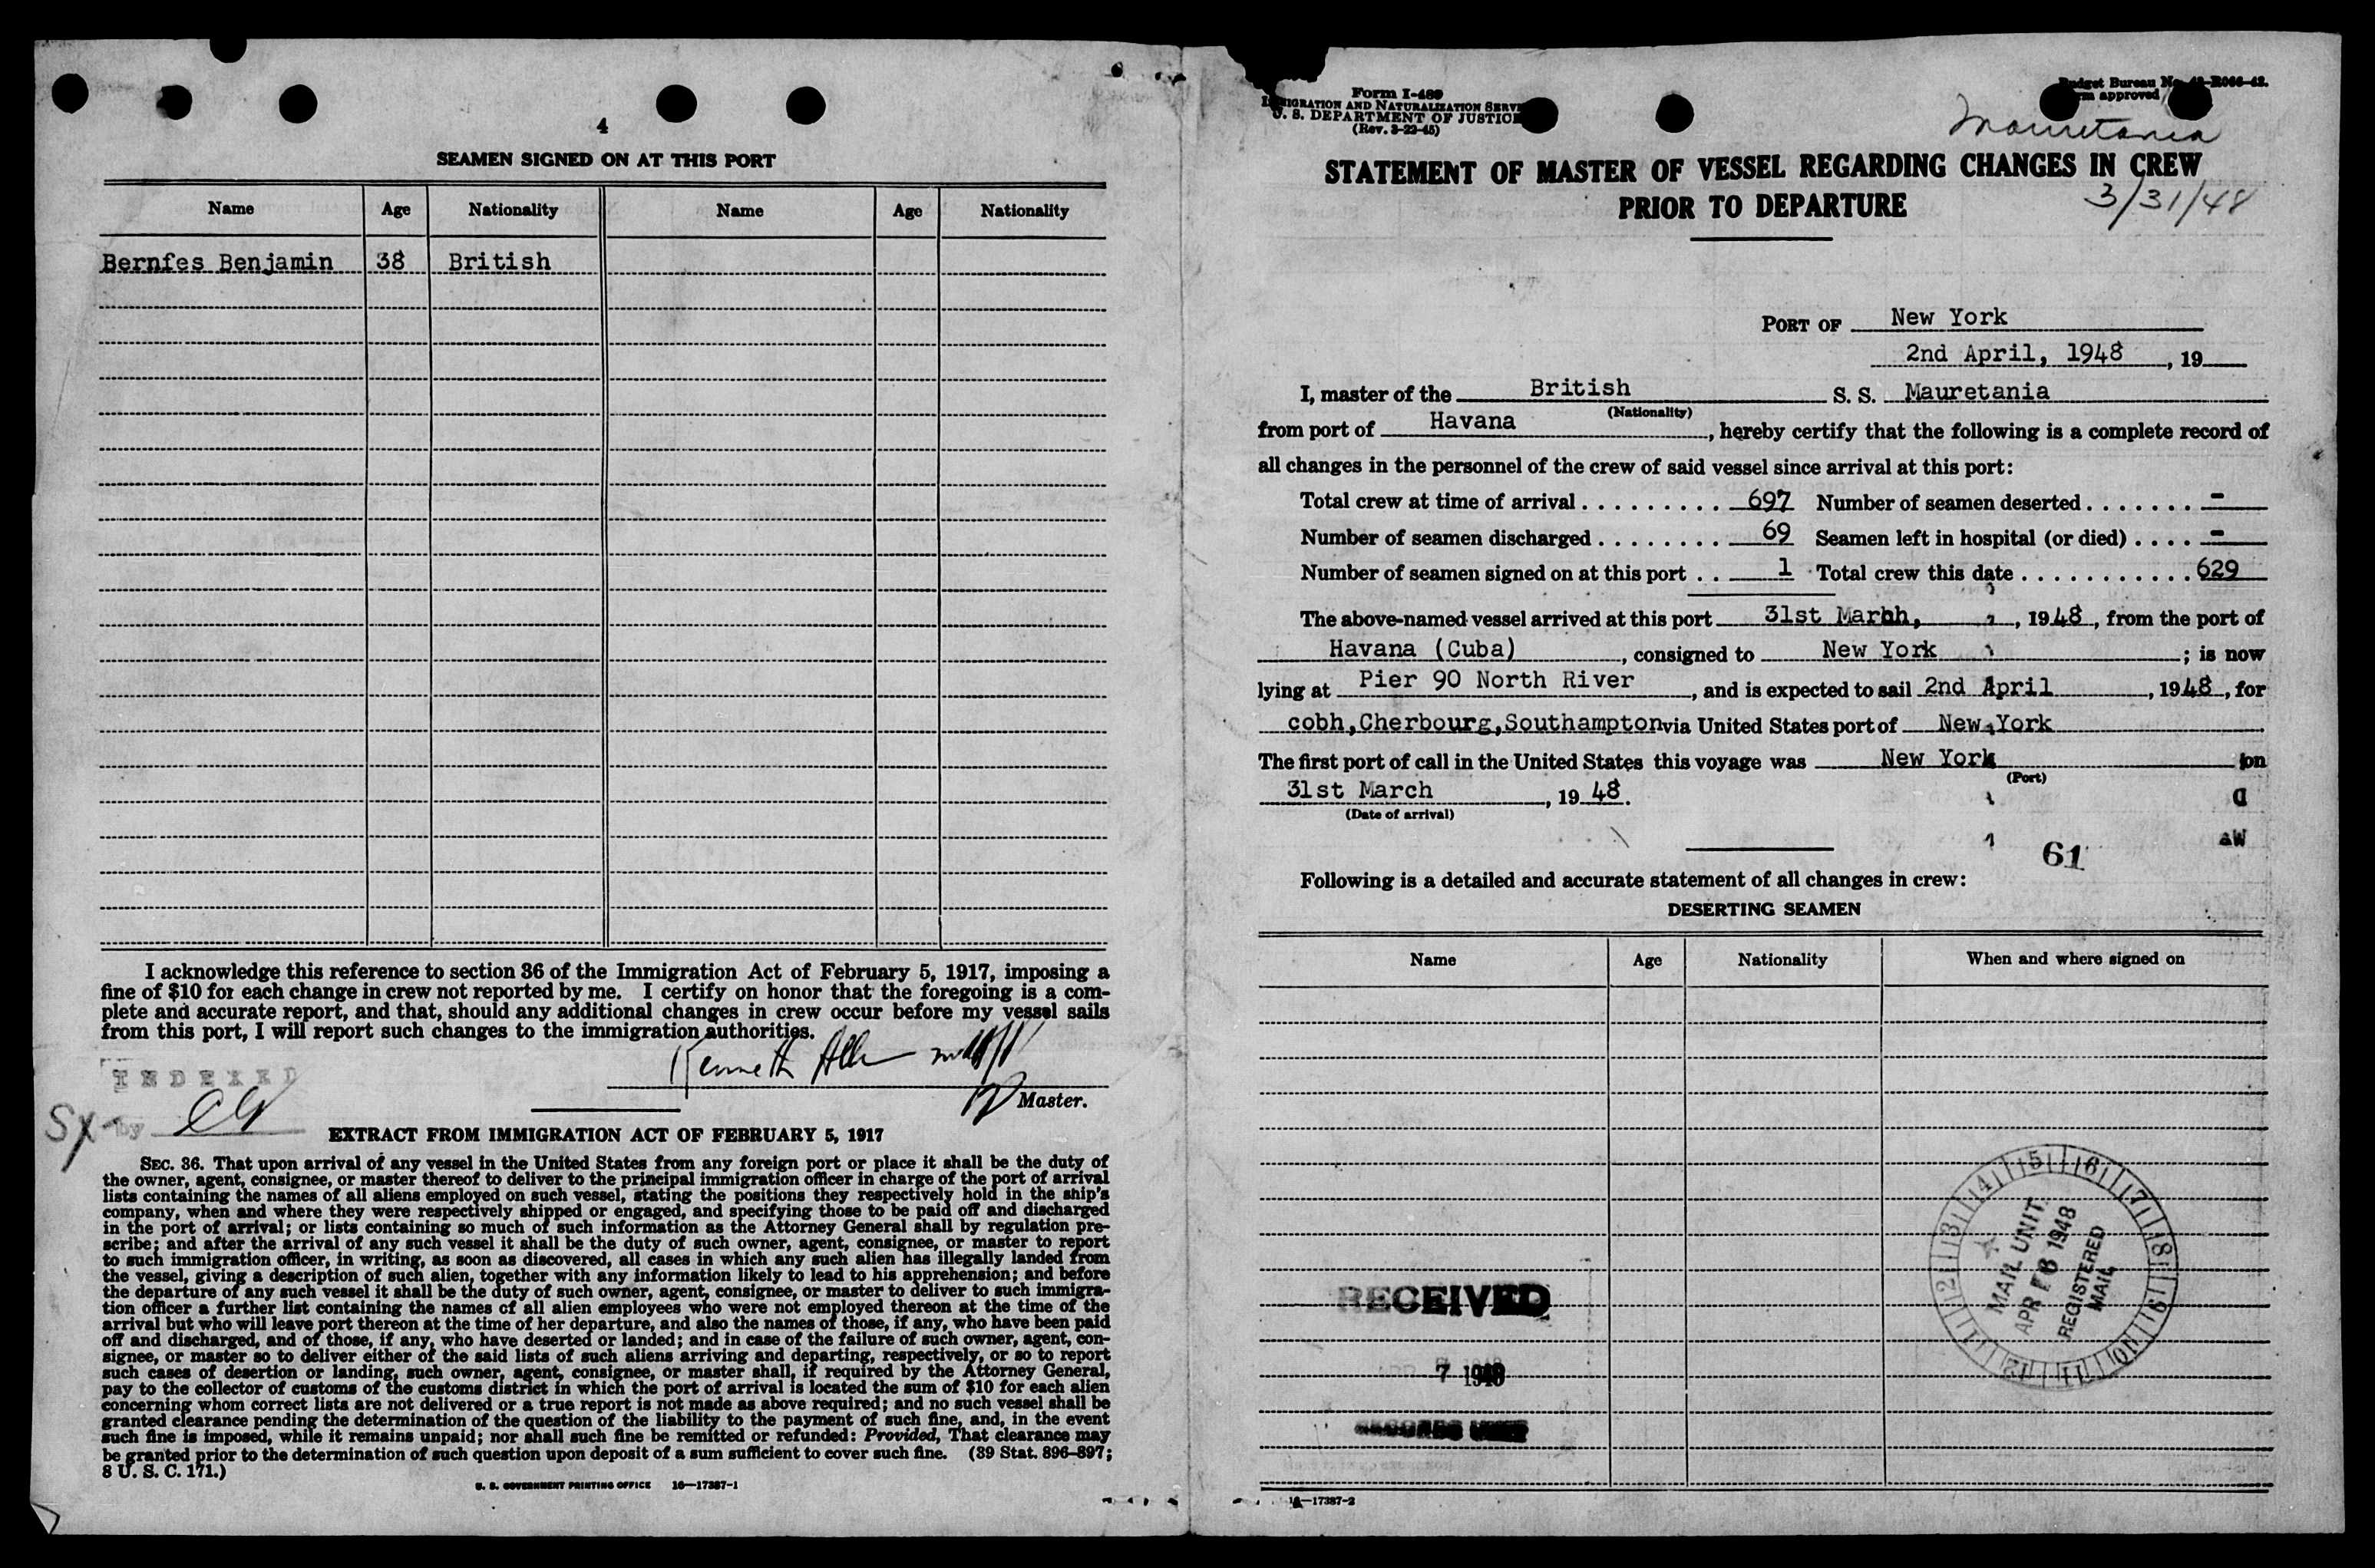 4
SEAMEN SIGNED ON AT THIS PORT
Name Age Nationality Name Age Nationality
Bernfes Benjamin 38 British
I acknowledge this reference to section 36 of the Immigration Act of February 5, 1917, imposing a
fine of $10 for each change in crew not reported by me. I certify on honor that the foregoing is a com-
plete and accurate report, and that, should any additional changes in crew occur before my vessel sails
from this port, I will report such changes to the immigration authorities.
Kenneth
Master.
INDEXED
by
EXTRACT FROM IMMIGRATION ACT OF FEBRUARY 5, 1917
SEC. 36. That upon arrival of any vessel in the United States from any foreign port or place it shall be the duty of
the owner, agent, consignee, or master thereof to deliver to the principal immigration officer in charge of the port of arrival
lists containing the names of all aliens employed on such vessel, stating the positions they respectively hold in the ship's
company, when and where they were respectively shipped or engaged, and specifying those to be paid off and discharged
in the port of arrival; or lists containing so much of such information as the Attorney General shall by regulation pre-
scribe; and after the arrival of any such vessel it shall be the duty of such owner, agent, consignee, or master to report
to such immigration officer, in writing, as soon as discovered, all cases in which any such alien has illegally landed from
the vessel, giving a description of such alien, together with any information likely to lead to his apprehension; and before
the departure of any such vessel it shall be the duty of such owner, agent, consignee, or master to deliver to such immigra-
tion officer a further list containing the names of all alien employees who were not employed thereon at the time of the
arrival but who will leave port thereon at the time of her departure, and also the names of those, if any, who have been paid
off and discharged, and of those, if any, who have deserted or landed; and in case of the failure of such owner, agent, con-
signee, or master so to deliver either of the said lists of such aliens arriving and departing, respectively, or so to report
such cases of desertion or landing, such owner, agent, consignee, or master shall, if required by the Attorney General,
pay to the collector of customs of the customs district in which the port of arrival is located the sum of $10 for each alien
concerning whom correct lists are not delivered or a true report is not made as above required; and no such vessel shall be
granted clearance pending the determination of the question of the liability to the payment of such fine, and, in the event
such fine is imposed, while it remains unpaid; nor shall such fine be remitted or refunded: Provided, That clearance may
be granted prior to the determination of such question upon deposit of a sum sufficient to cover such fine. (39 Stat. 896–897;
8 U. S. C. 171.)
U. S. GOVERNMENT PRINTING OFFICE 16—17387-1
Form I-489
IMMIGRATION AND NATURALIZATION SERV
U. S. DEPARTMENT OF JUSTICE
(Rev. 3-22-45)
Budget Bureau No. 43-R066-42.
approved
Mauretania
STATEMENT OF MASTER OF VESSEL REGARDING CHANGES IN CREW
PRIOR TO DEPARTURE
3/31/48
PORT OF New York
2nd April, 1948, 19
I, master of the British S. S. Mauretania
(Nationality)
from port of Havana, hereby certify that the following is a complete record of
all changes in the personnel of the crew of said vessel since arrival at this port:
Total crew at time of arrival . . . . . . . . . 697 Number of seamen deserted . . . . . . . -
Number of seamen discharged . . . . . . . . 69 Seamen left in hospital (or died) . . . . -
Number of seamen signed on at this port . . 1 Total crew this date . . . . . . . . . . . 629
The above-named vessel arrived at this port 31st March, , 1948, from the port of
Havana (Cuba), consigned to New York; is now
lying at Pier 90 North River, and is expected to sail 2nd April, 1948, for
cobh,Cherbourg,Southampton via United States port of New York
The first port of call in the United States this voyage was New York on
(Port)
31st March, 1948.
(Date of arrival)
61
Following is a detailed and accurate statement of all changes in crew:
DESERTING SEAMEN
Name Age Nationality When and where signed on
RECEIVED
APR 7 1948
RECORDS UNIT
MAIL UNIT
APR 6 1948
REGISTERED
MAIL
1 2 3 4 5 6 7 8 9 10 11 12
16—17387-2